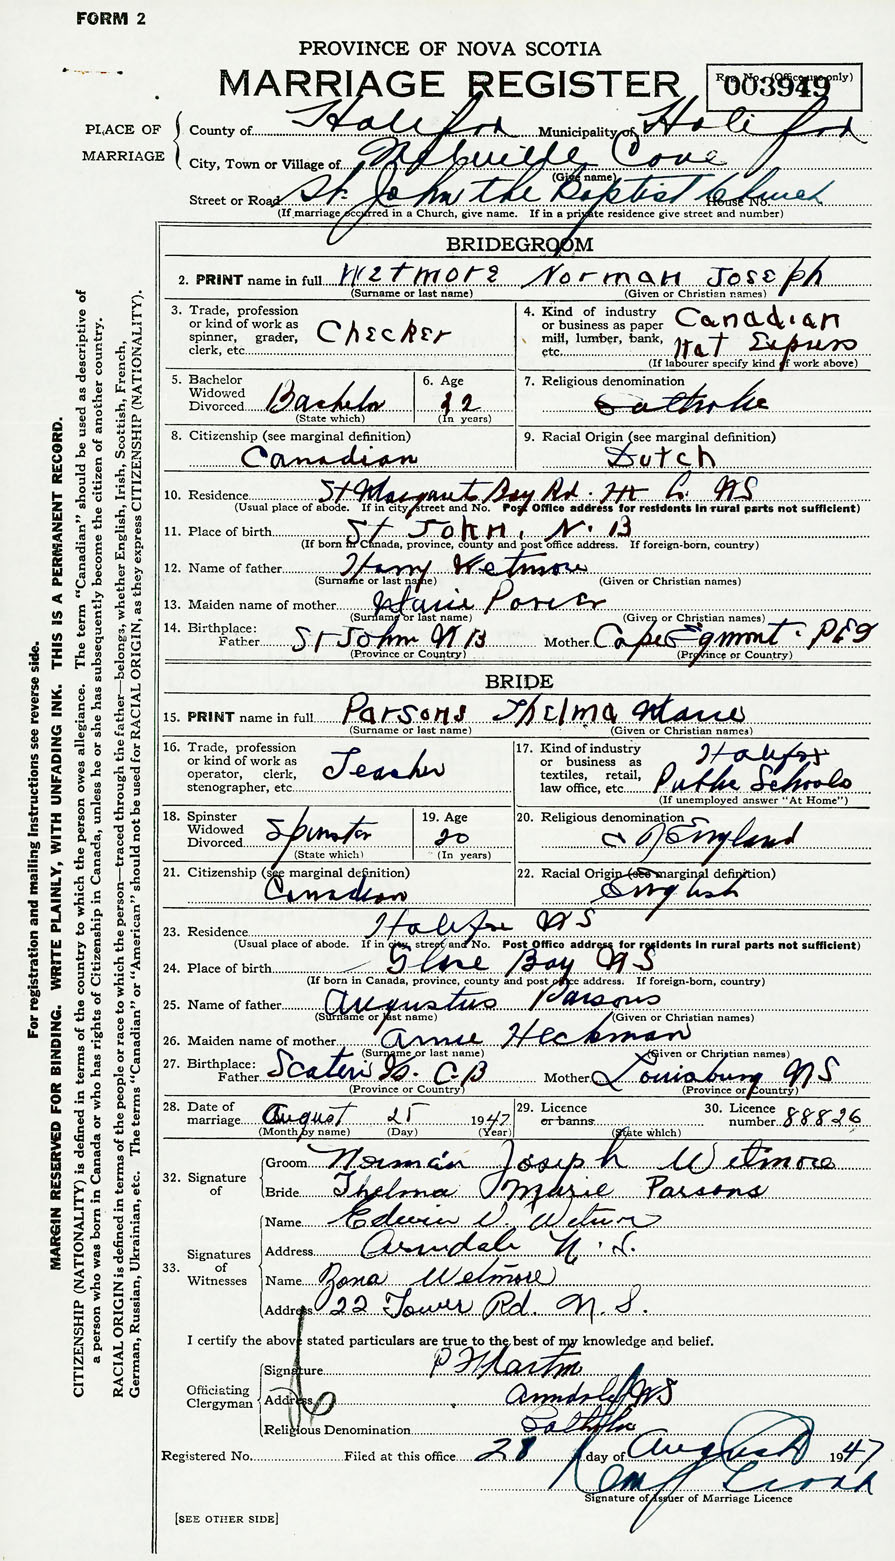 FORM 2
PROVINCE OF NOVA SCOTIA
MARRIAGE REGISTER
Reg. No. (Office use only)
003949
PLACE OF MARRIAGE
County of Halifax Municipality of Halifax
City, Town or Village of Melville Cove
(Give name)
Street or Road St. John the Baptist Church House No.
(If marriage occurred in a Church, give name. If in a private residence give street and number)
BRIDEGROOM
2. PRINT name in full Wetmore Norman Joseph
(Surname or last name) (Given or Christian names)
3. Trade, profession or kind of work as spinner, grader, clerk, etc. Checker
4. Kind of industry or business as paper mill, lumber, bank, etc. Canadian Nat Express
(If labourer specify kind of work above)
5. Bachelor Widowed Divorced Bachelor
(State which)
6. Age 22
(In years)
7. Religious denomination Catholic
8. Citizenship (see marginal definition)
Canadian
9. Racial Origin (see marginal definition)
Dutch
10. Residence St Margarets Bay Rd. Hx Co NS
(Usual place of abode. If in city street and No. Post Office address for residents in rural parts not sufficient)
11. Place of birth St John, N.B
(If born in Canada, province, county and post office address. If foreign-born, country)
12. Name of father Harry Wetmore
(Surname or last name) (Given or Christian names)
13. Maiden name of mother Marie
(Surname or last name) (Given or Christian names)
14. Birthplace: Father St John NB Mother Cape Egmont. PEI
(Province or Country) (Province or Country)
BRIDE
15. PRINT name in full Parsons Thelma Marie
(Surname or last name) (Given or Christian names)
16. Trade, profession or kind of work as operator, clerk, stenographer, etc. Teacher
17. Kind of industry or business as textiles, retail, law office, etc. Halifax Public Schools
(If unemployed answer "At Home")
18. Spinster Widowed Divorced Spinster
(State which)
19. Age 20
(In years)
20. Religious denomination
C of England
21. Citizenship (see marginal definition)
Canadian
22. Racial Origin (see marginal definition)
English
23. Residence Halifax NS
(Usual place of abode. If in city, street and No. Post Office address for residents in rural parts not sufficient)
24. Place of birth Glace Bay NS
(If born in Canada, province, county and post office address. If foreign-born, country)
25. Name of father Augustus Parsons
(Surname or last name) (Given or Christian names)
26. Maiden name of mother Annie Heckman
(Surname or last name) (Given or Christian names)
27. Birthplace: Father Scaterie Is. C.B Mother Louisburg NS
(Province or Country) (Province or Country)
28. Date of marriage August 25 1947
(Month by name) (Day) (Year)
29. Licence or banns
(State which)
30. Licence number 88826
32. Signature of
Groom Norman Joseph Wetmore
Bride Thelma Marie Parsons
33. Signatures of Witnesses
Name Edwin Wetmore
Address Armdale N.S.
Name Zona Wetmore
Address 22 Tower Rd. N.S.
I certify the above stated particulars are true to the best of my knowledge and belief.
Officiating Clergyman
Signature Martin
Address Armdale NS
Religious Denomination Catholic
Registered No. Filed at this office 28 day of August 1947
Signature of Issuer of Marriage Licence
[SEE OTHER SIDE]
For registration and mailing instructions see reverse side.
MARGIN RESERVED FOR BINDING. WRITE PLAINLY, WITH UNFADING INK. THIS IS A PERMANENT RECORD.
CITIZENSHIP (NATIONALITY) is defined in terms of the country to which the person owes allegiance. The term "Canadian" should be used as descriptive of
a person who was born in Canada or who has rights of Citizenship in Canada, unless he or she has subsequently become the citizen of another country.
RACIAL ORIGIN is defined in terms of the people or race to which the person—traced through the father—belongs, whether English, Irish, Scottish, French,
German, Russian, Ukrainian, etc. The terms "Canadian" or "American" should not be used for RACIAL ORIGIN, as they express CITIZENSHIP (NATIONALITY).